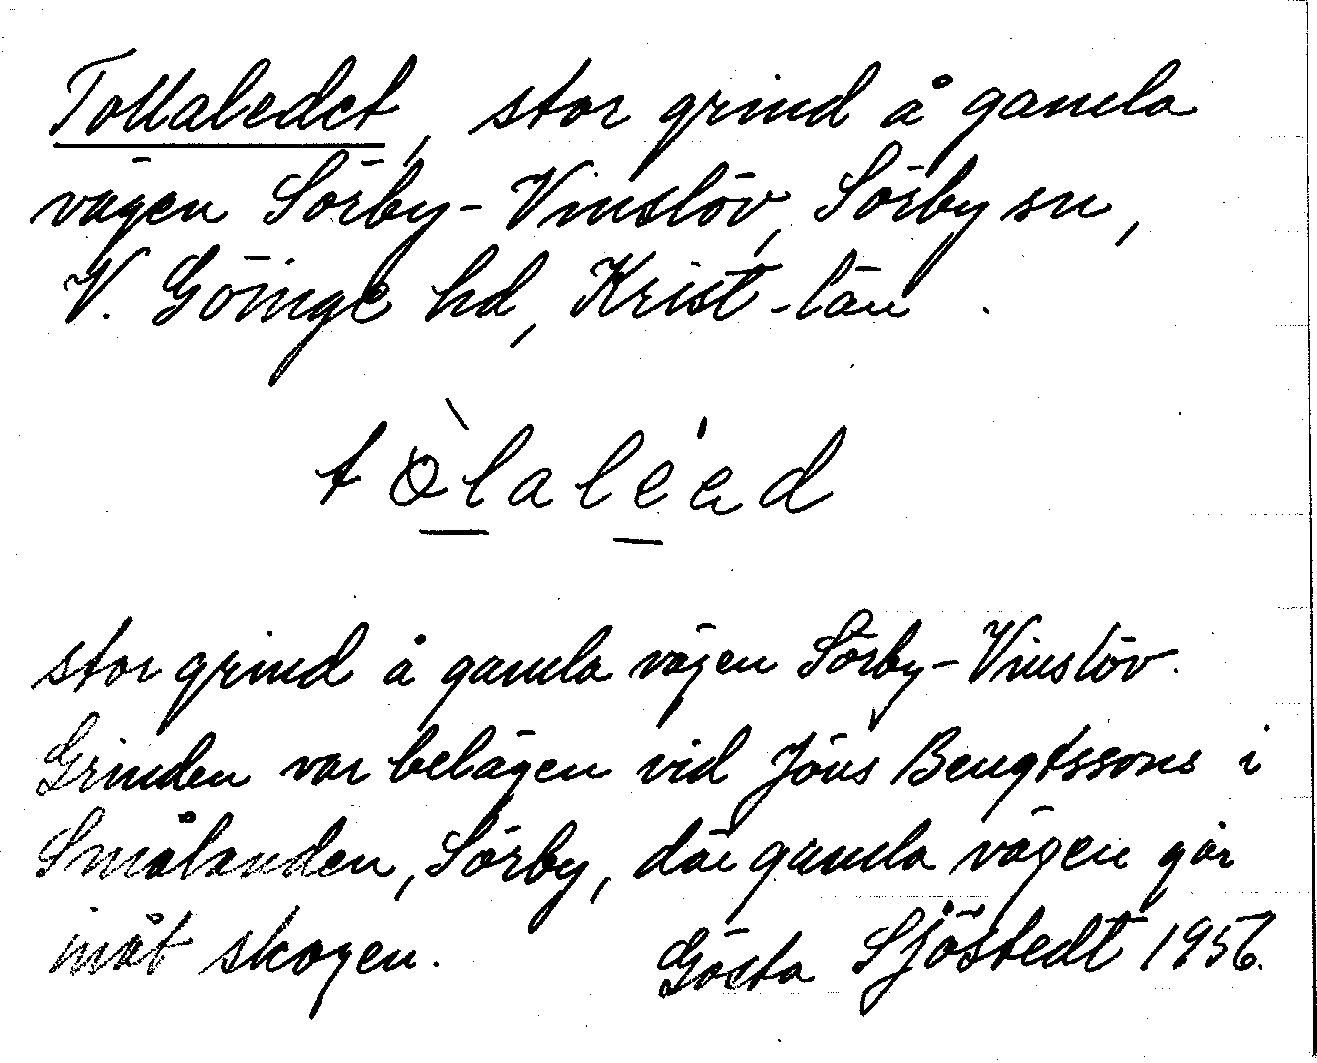 Tollaledet, stor grind å gamla
vägen Sörby-Vinslöv, Sörby sn,
V. Göinge hd, Krist-län.
tòlaléad
stor grind å gamla vägen Sörby-Vinslöv.
Grinden var belägen vid Jöns Bengtssons i
Smålanden, Sörby, där gamla vägen går
inåt skogen. Gösta Sjöstedt 1956.